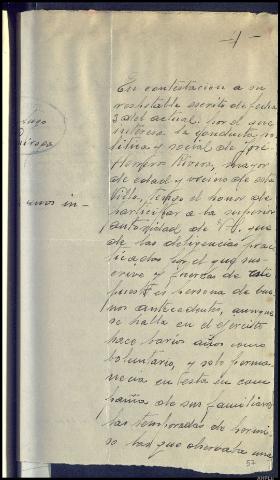 -1-
En contestación a su
respetable escrito de fecha
3 del actual por el que
interesa la conducta, po-
litica y social de José
Herrero Rivera, mayor
de edad y vecino de esta
Villa, tengo el honor de
participar a la superior
autoridad de V.S. que
de las diligencias prac-
ticadas por el que sus-
cribe y fuerzas de este
puesto es persona de bue-
nos antecedentes, aunque
se halla en el ejercito
hace barios años como
boluntario, y solo perma-
necia en esta en com-
pañia de sus familiares
las temporadas de permi-
so las que observaba una
57